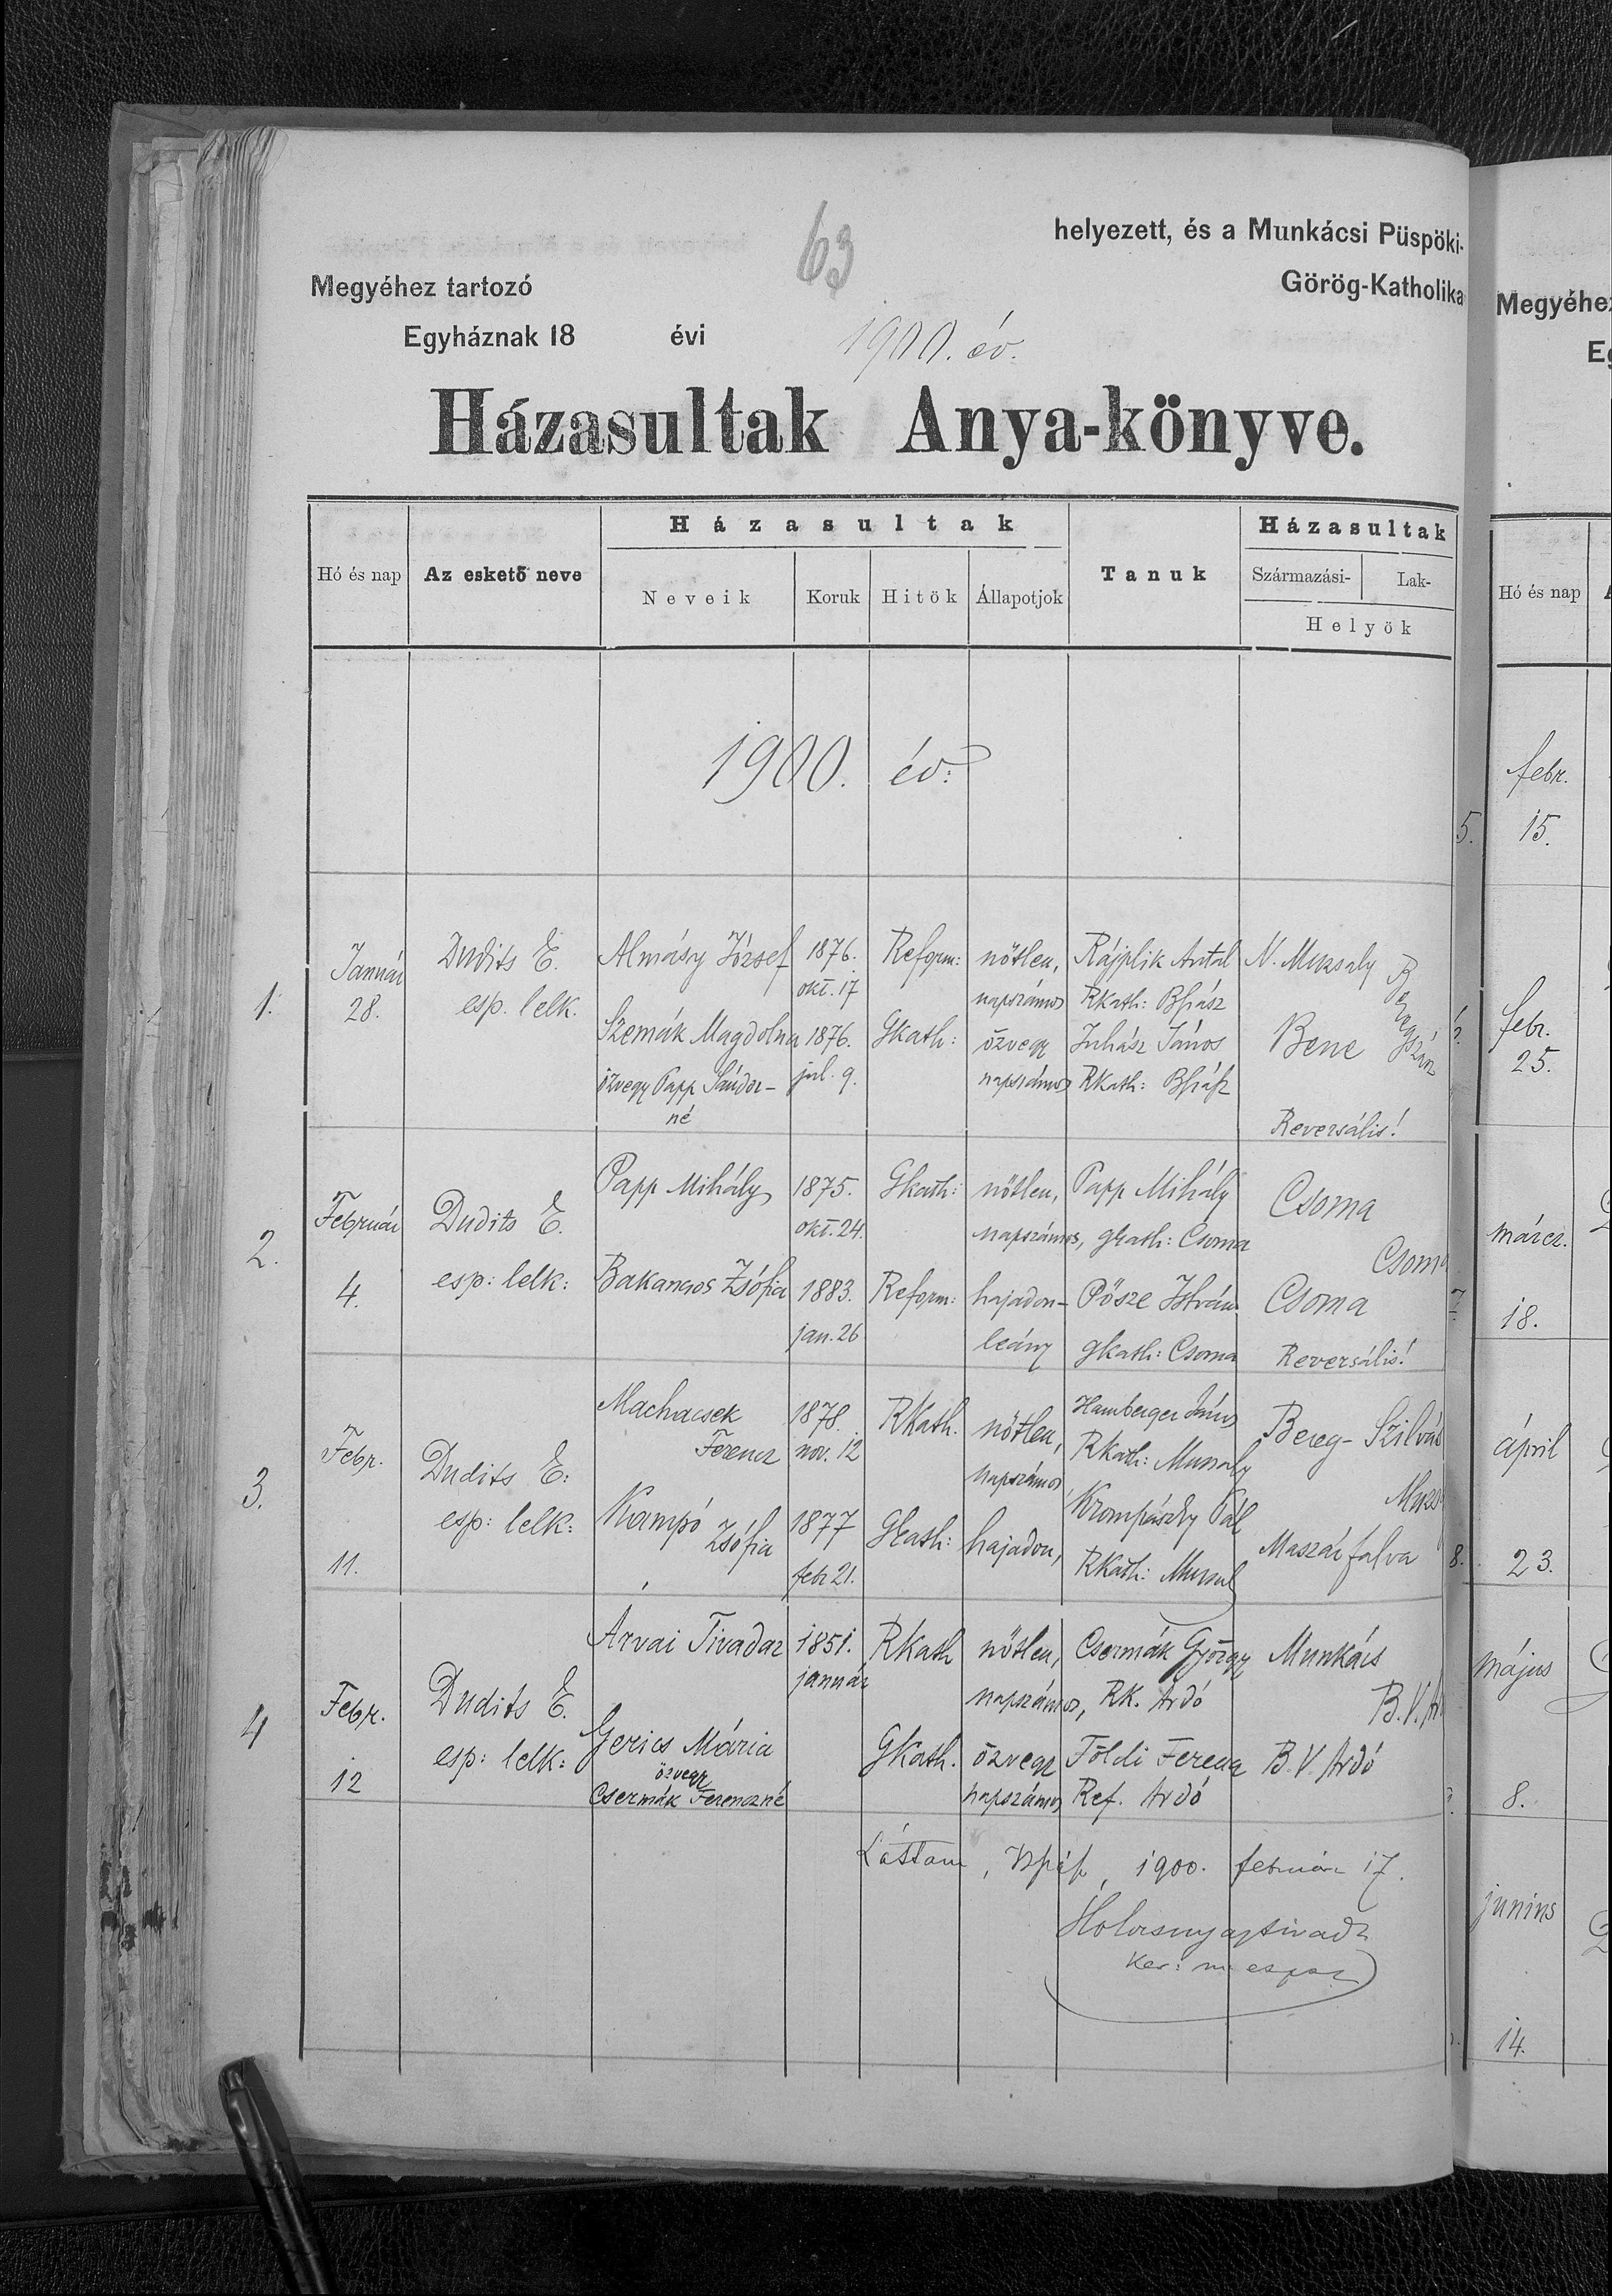 63
helyezett, és a Munkácsi Püspöki-
Megyéhez tartozó
Görög-Katholika
Egyháznak 18 évi
1900. év.
Házasultak Anya-könyve.
Hó és nap
Az eskető neve
Házasultak
Neveik
Koruk
Hitök
Állapotjok
Tanuk
Házasultak
Származási-
Lak-
Helyök
1900. év:
1.
Január
28.
Dudits E.
esp. lelk.
Almásy József
1876.
okt. 17
Reform:
nőtlen,
napszámos
Rájplik Antal
Rkath: Bhász
N. Muzsaly
Beregszász
Szemák Magdolna
özvegy Papp Sándor-
né
1876.
jul. 9.
Gkath:
özvegy
napszámos
Juhász János
RKath: Bhász
Bene
Reversális!
2.
Február
4.
Dudits E.
esp: lelk:
Papp Mihály
1875.
okt. 24.
Gkath:
nőtlen,
napszámos,
Papp Mihály
gkath: Csoma
Csoma
Csoma
Bakancsos Zsófia
1883.
jan. 26
Reform:
hajadon-
leány
Pősze István
gkath: Csoma
Csoma
Reversális!
3.
Febr.
11.
Dudits E:
esp: lelk:
Machacsek
Ferencz
1878.
nov. 12
RKath.
nőtlen,
napszámos
Hamberger János
Rkath: Muzsaly
Bereg-Szilvás
Muzs
Kampó
Zsófia
1877
febr 21.
Gkath:
hajadon,
Krompászky Pál
RKath: Muzsal
Maszárfalva
4
Febr.
12
Dudits E.
esp: lelk:
Arvai Tivadar
1851.
január
RKath
nőtlen,
napszámos,
Csermák György
RK. Ardó
Munkács
B.V.Ar
Gerics Mária
özvegy
Csermák Ferenczné
GKath.
özvegy
napszámos
Földi Ferencz
Ref. Ardó
B.V. Ardó
Láttam, 1900. február 17.
Megyéhez
Eg
Hó és nap
5.
febr.
15.
febr.
25.
7.
márcz.
18.
8.
április
23.
május
8.
junius
14.